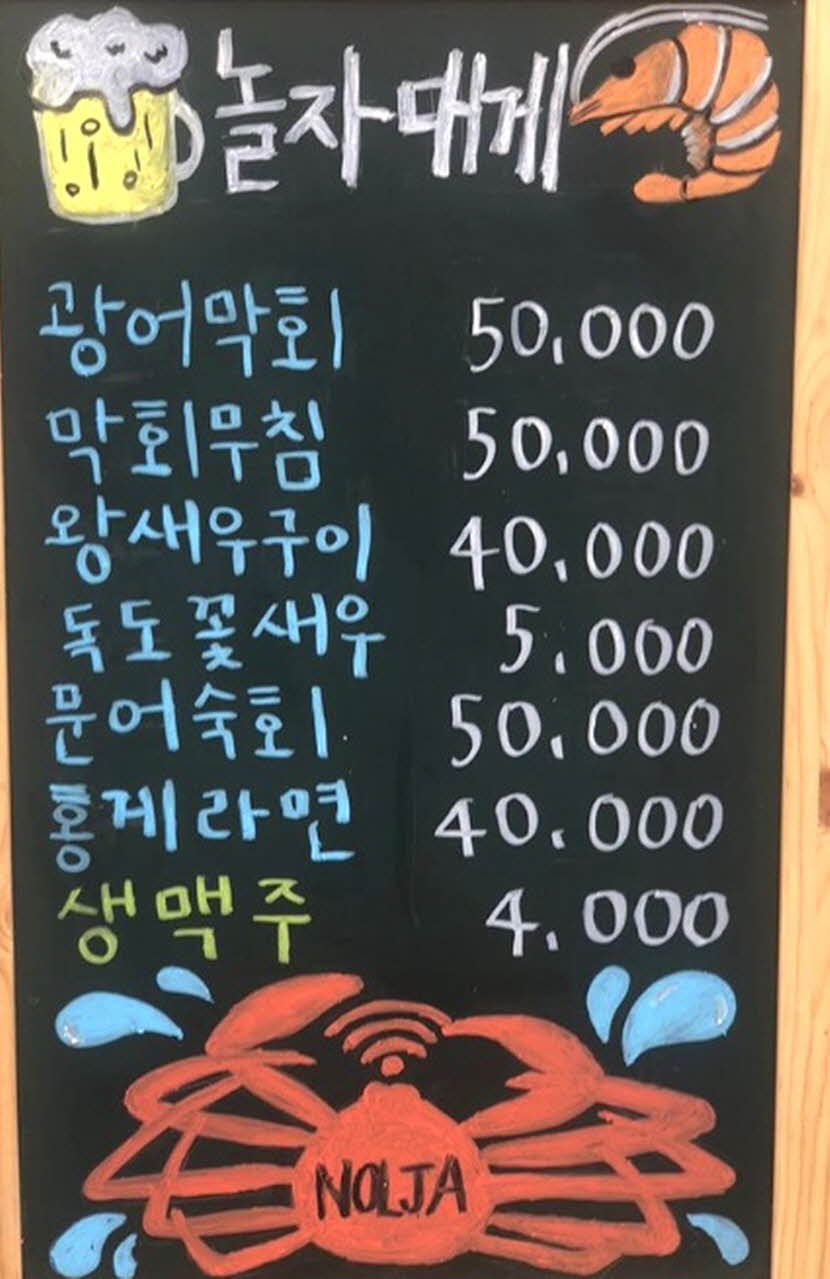 놀자대게
광어막회 50,000
막회무침 50,000
왕새우구이 40,000
독도꽃새우 5,000
문어숙회 50,000
홍게라면 40,000
생맥주 4,000
NOLJA